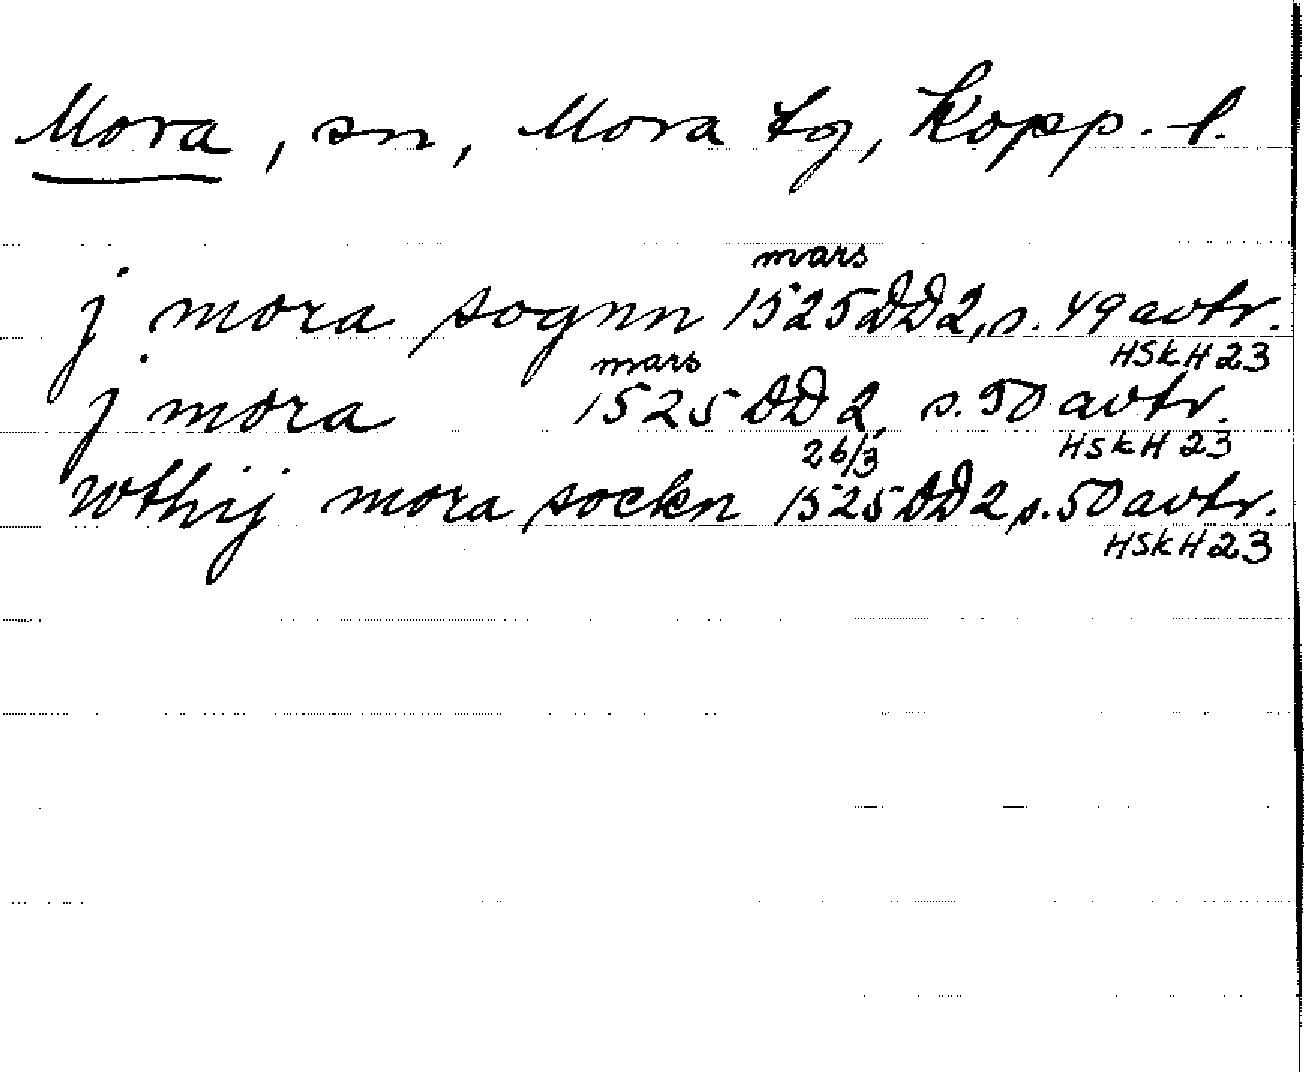 Mora, sn, Mora tg, Kopp. l.
mars
j mora sognn 1525 DD2, s. 49 avtr.
HSkH 23
mars
j mora 1525 DD 2, s. 50 avtr.
HSkH 23
26/3
wthij mora sockn 1525 DD2 s. 50 avtr.
HSkH 23